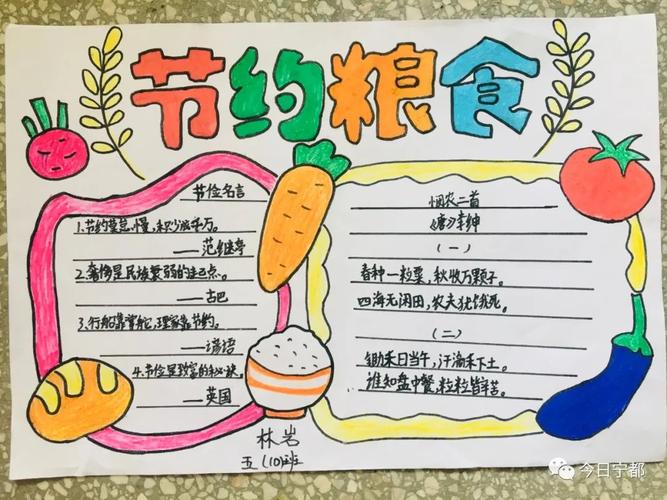 节约粮食
节俭名言
1.节约莫怠慢，积少成千万。
——范继亭
2.奢侈是民族衰弱的起点。
——古巴
3.行船靠掌舵，理家靠节约。
——谚语
4.节俭是致富的秘诀。
——英国
悯农二首
《唐》李绅
（一）
春种一粒粟，秋收万颗子。
四海无闲田，农夫犹饿死。
（二）
锄禾日当午，汗滴禾下土。
谁知盘中餐，粒粒皆辛苦。
林岩
五（10）班
今日宁都